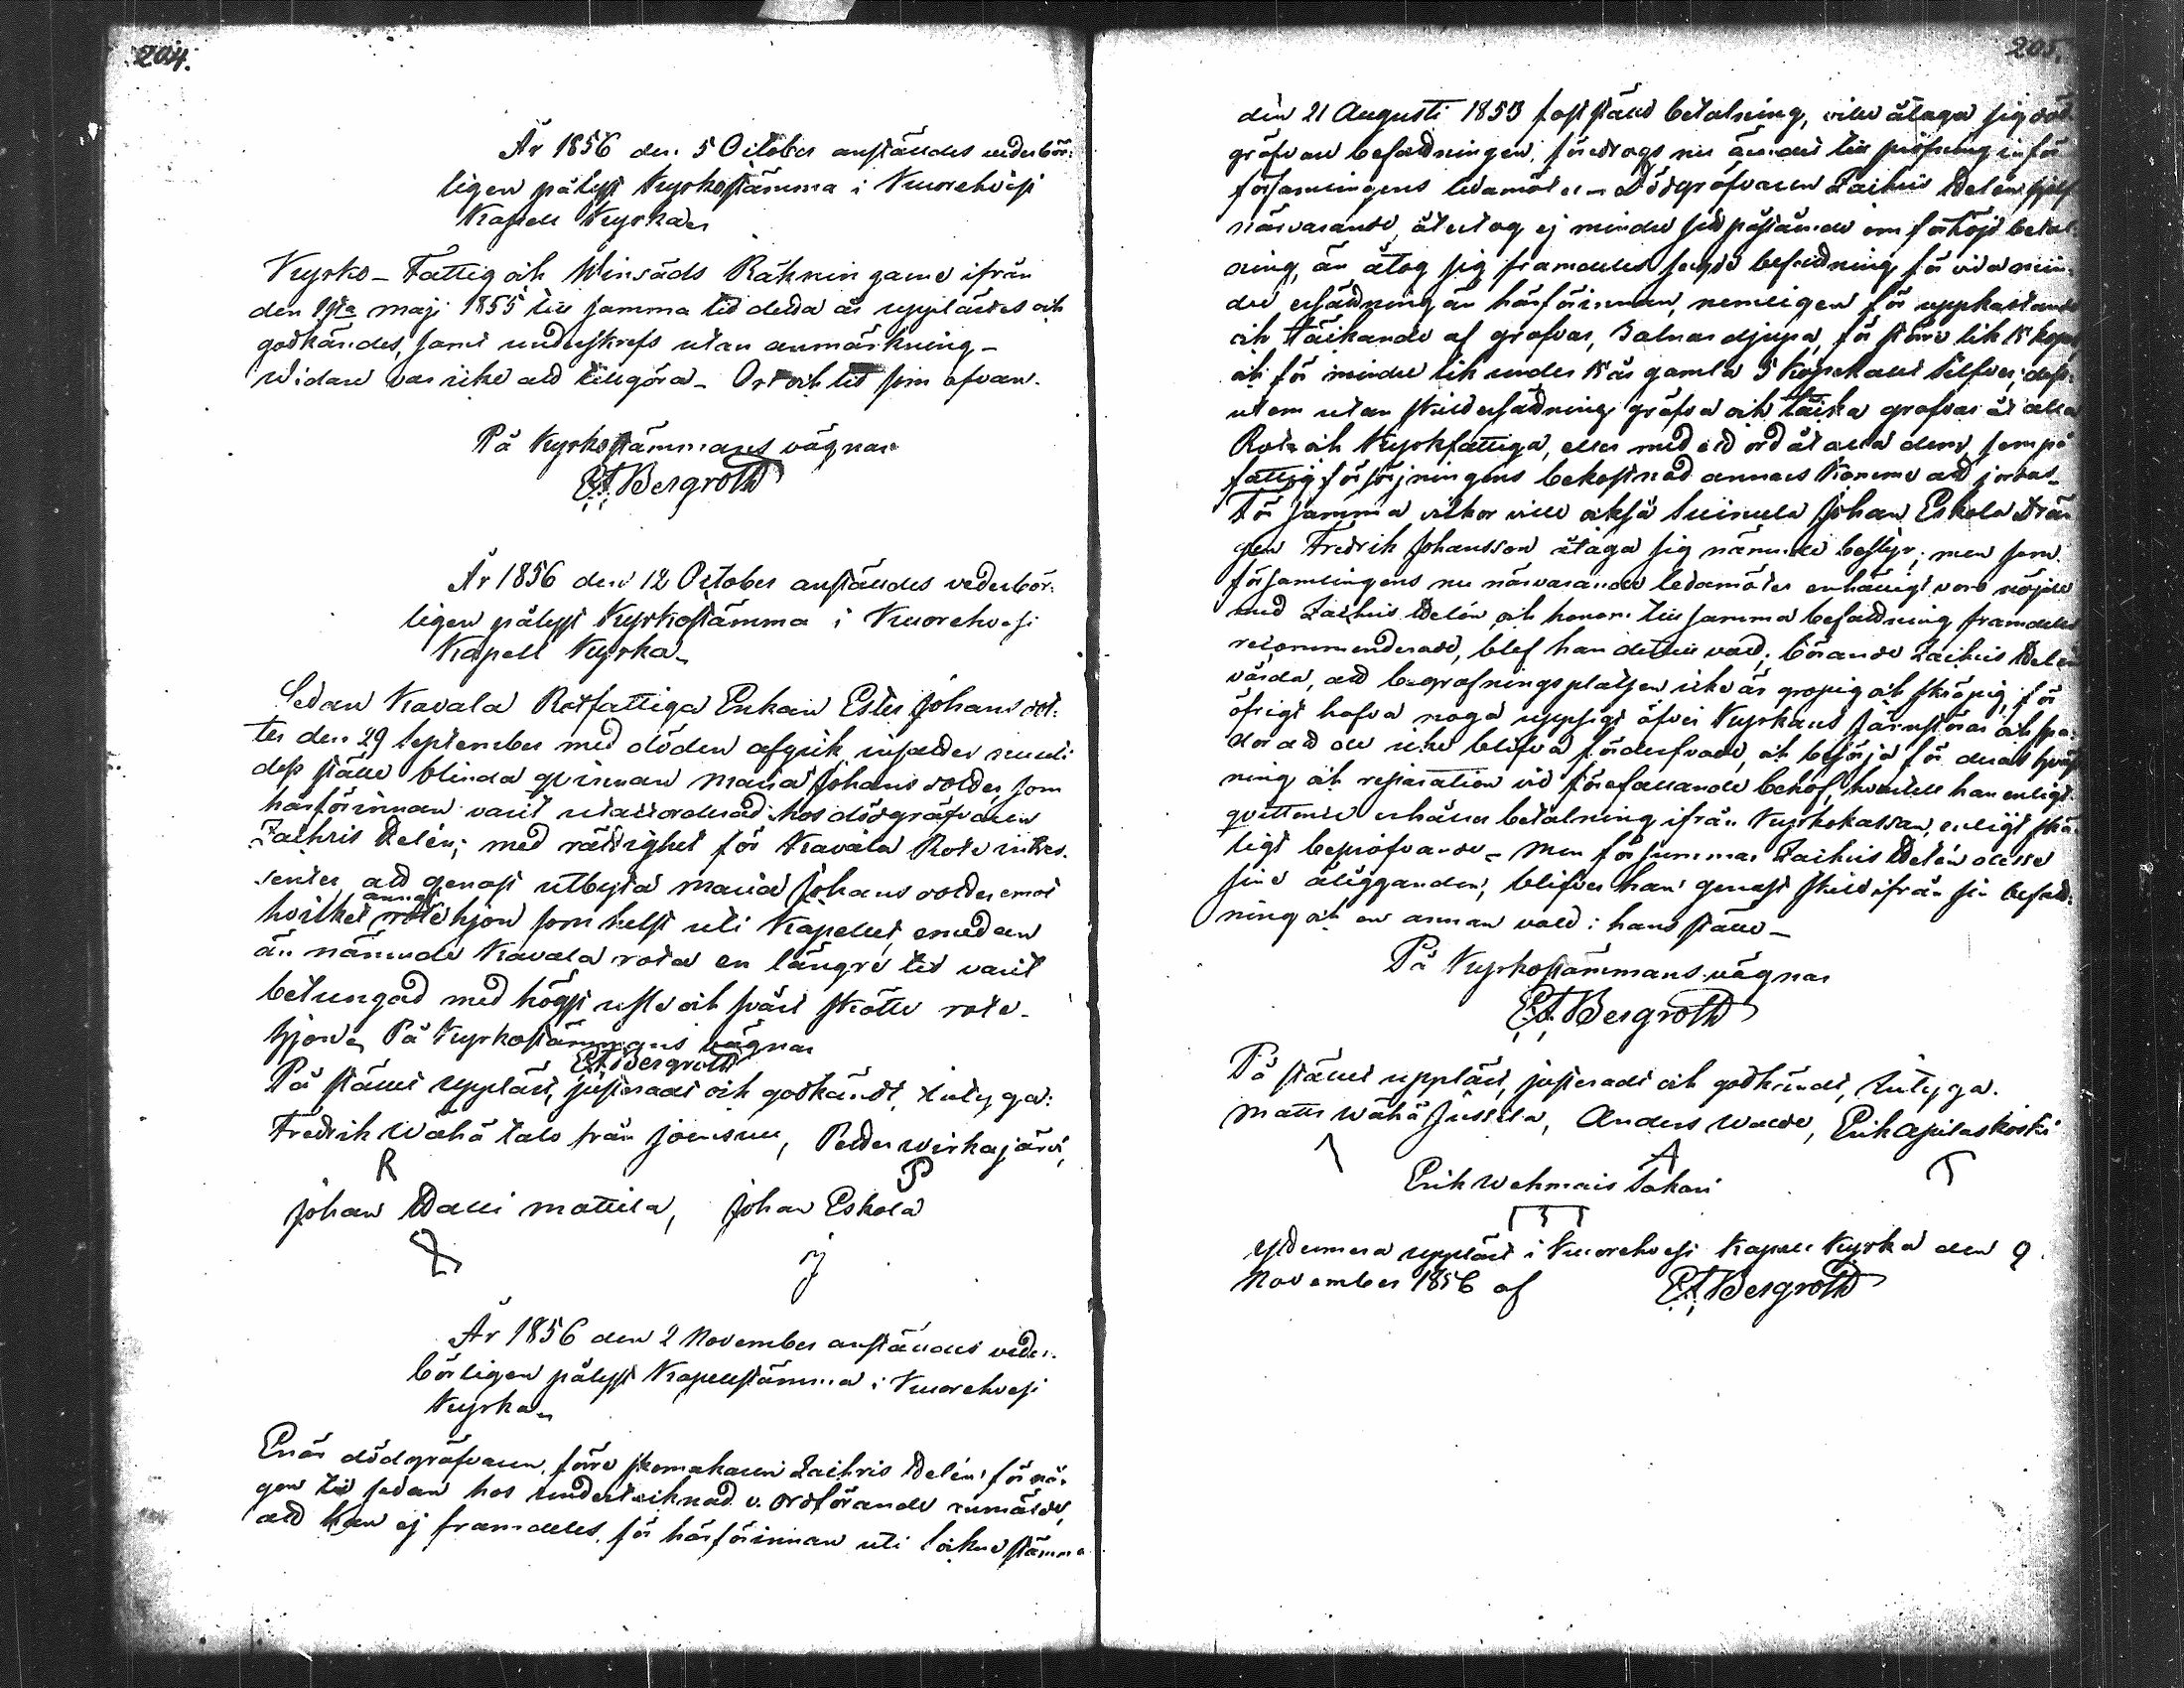 204.
År 1856 den 5 October anställdes vederbör-
ligen pålyst Kyrkostämma i Kuorehvesi
Kapell Kyrka
Kyrko- Fattig och Winsäds Räkningarne ifrån
den 1sta maji 1855 till samma tid detta år upplästes och
godkändes, samt underskrefs utan anmärkning-
widare var icke att tillgöra- Ort och tid som ofvan.
På Kyrkostämmans vägnar
E A Bergroth
År 1856 den 12 October anställdes vederbör-
ligen pålyst Kyrkostämma i Kuorehvesi
Kapell Kyrka-
Sedan Kavala Rotfattiga Enkan Ester Johansdot-
ter den 29 September med döden afgick, insattes
dess ställe blinda qvinnan Maria Johansdotter, som
härförinnan varit utackorderad hos dödgräfvaren
Zachris Idelén; med rättighet för Kavala Rote intres-
senter, att genast utbyta Maria Johansdotter emot
annat
hvilket rotehjon som helst uti Kapellet, emedan
än nämnde Kavala rota en längre tid varit
betungad med högst usle och svårt skötte rote-
hjon- På Kyrkostämmans vägnar
E A Bergroth
På stället uppläst, justeradt och godkändt, intyga:
Fredrik Wähä talo från Joensuu, Petter Wirkajärvi,
R P
Johan Walli Mattila, Johan Eskola
År 1856 den 2 November anställdes veder-
börligen pålyst Kapellstämma i Kuorehvesi
Kyrka-
Enär dödgräfvaren, förre skomakaren Zachris Idelén, för nå-
gon tid sedan hos undertecknad v. ordförande anmälde,
att han ej framdeles för härförinnan uti Sockne stämma
205.
den 21 Augusti 1853 fastställd betalning, ville åtaga sig död-
gräfvare befattningen, föredrogs nu ärendet till pröfning inför
församlingens ledamöter- Dödgräfvaren Zachris Idelén sjelf
närvarande, återtog ej mindre sitt påstående om förhöjd betal-
ning, än åtog sig framdeles sagde befattning för vida min-
dre ersättning än härförinnan, nemligen för uppkastande
och täckande af grafvar, 3 alnar djupa, för större lik 15 kopek
och för mindre lik under 15 år gamla 5 kopek allt Silfver; dess-
utom utan skild ersättning gräfva och täcka grafvar åt alla
Rote och Kyrkfattiga, eller med ett ord åt alla dem, som på
fattigförsörjningens bekostnad annars komme att jordas-
För samma vilkor ville också Johan Eskola Drän-
gen Fredrik Johansson åtaga sig nämnde bestyr, men som
församlingens nu närvarande ledamöter enhälligt voro nöjde
med Zachris Idelén och honom till samma befattning framdeles
recommenderade, blef han dertill vald; börande Zachris Idelén
vårda, att begrafningsplatsen icke är gropig och skräpig, för
öfrigt hafva noga uppsigt öfver Kyrkans järnstörar och spa-
dor att de icke blifva förderfvade, och besörja för deras hväss-
ning och reparation vid förefallande behof, hvartill han enligt
qvittence erhåller betalning ifrån Kyrkokassan, enligt skä-
ligt bepröfvande- Men försummar Zachris Idelén desse
sine åligganden, blifver han genast skild ifrån sin befatt-
ning och en annan vald i hans ställe-
På Kyrkostämmans vägnar
E A Bergroth
På stället uppläst, justeradt och godkändt, intyga.
Matts Wähä Jussila, Anders Walde, Erik Apilaskoski
A
Erik Wehmais Sakari
Ytterligare uppläst i Kuorehvesi Kapell Kyrka den 9
November 1856 af E A Bergroth